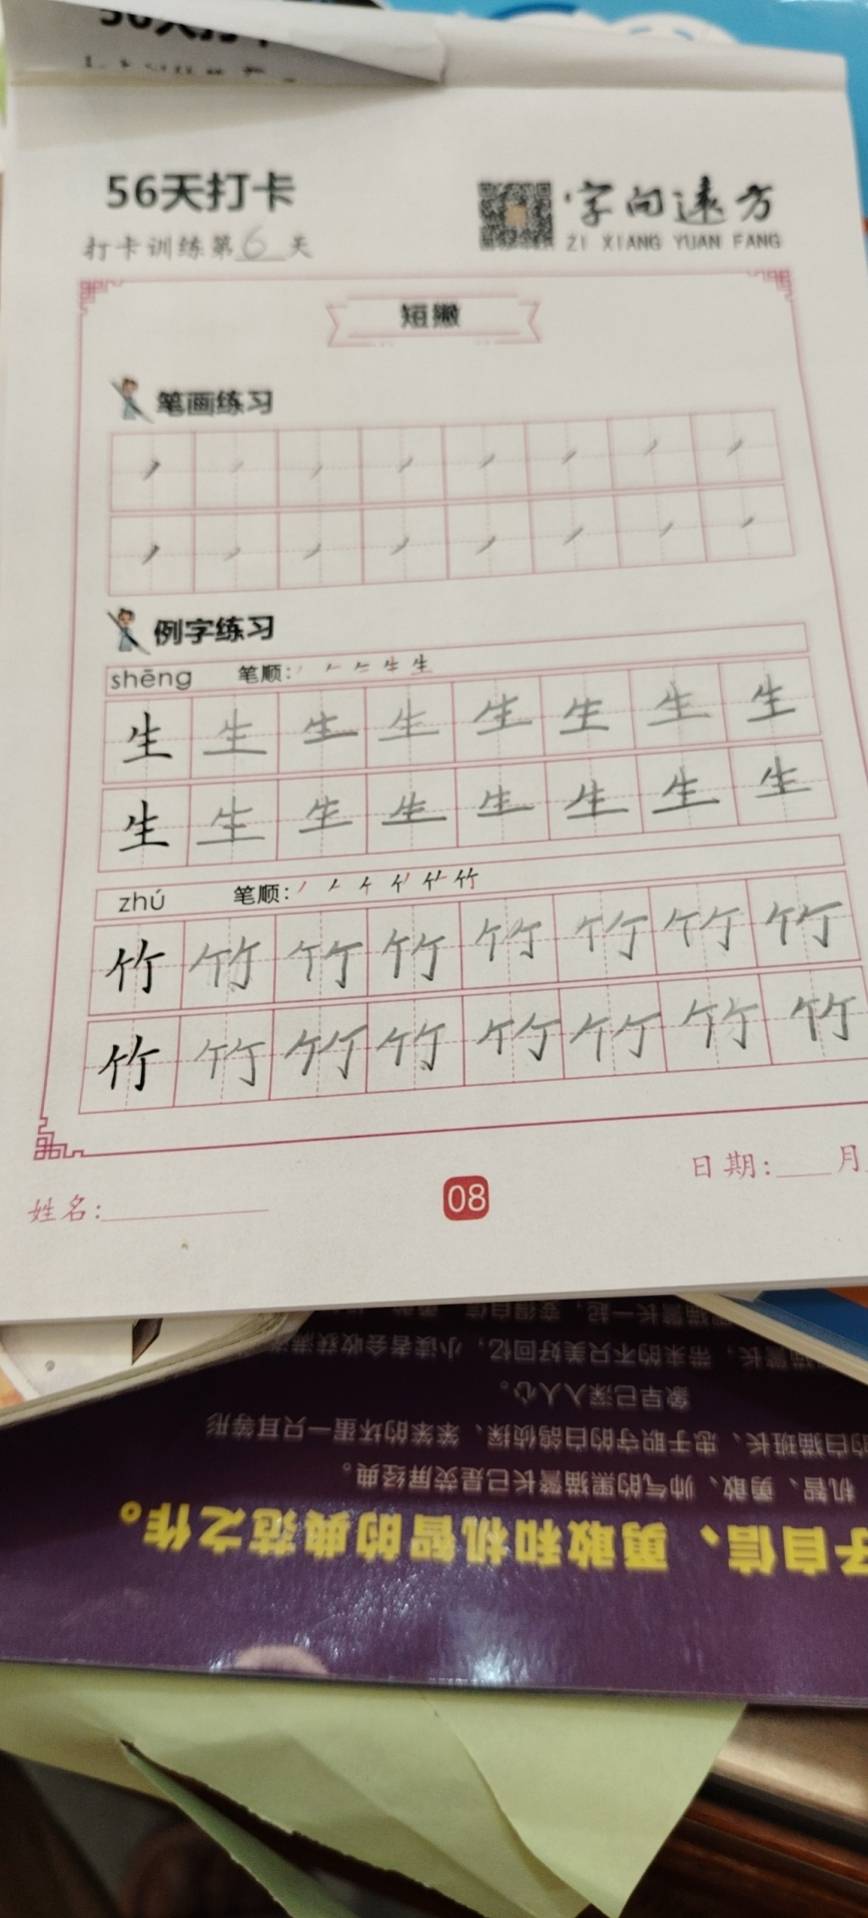 56天打卡
字向远方
打卡训练第6天
ZI XIANG YUAN FANG
短撇
笔画练习
例字练习
shēng 笔顺：
生 生 生 生 生 生 生 生
生 生 生 生 生 生 生 生
zhú 笔顺：
竹 竹 竹 竹 竹 竹 竹 竹
竹 竹 竹 竹 竹 竹 竹 竹
日期：____月
姓名：
08
子自信、勇敢和机智的典范之作。
机智、勇敢、帅气的黑猫警长已是荧屏经典。
的白猫班长、忠于职守的白鸽侦探、笨笨的坏蛋一只耳等形
象早已深入人心。